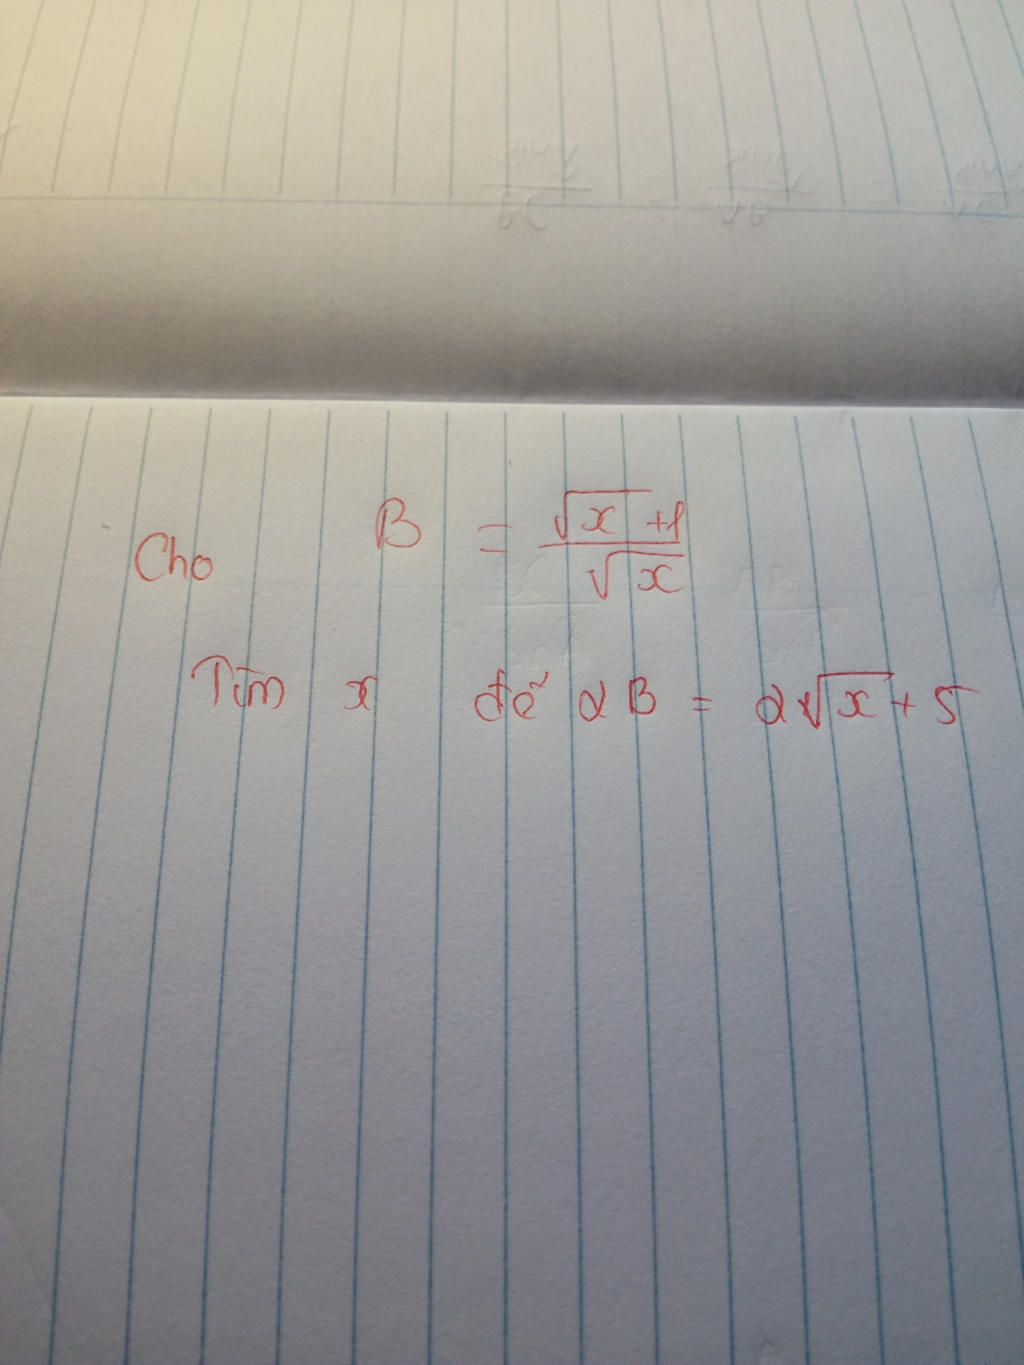 Cho B = \frac{\sqrt{x}+1}{\sqrt{x}}
Tìm x để 2B = 2\sqrt{x} + 5